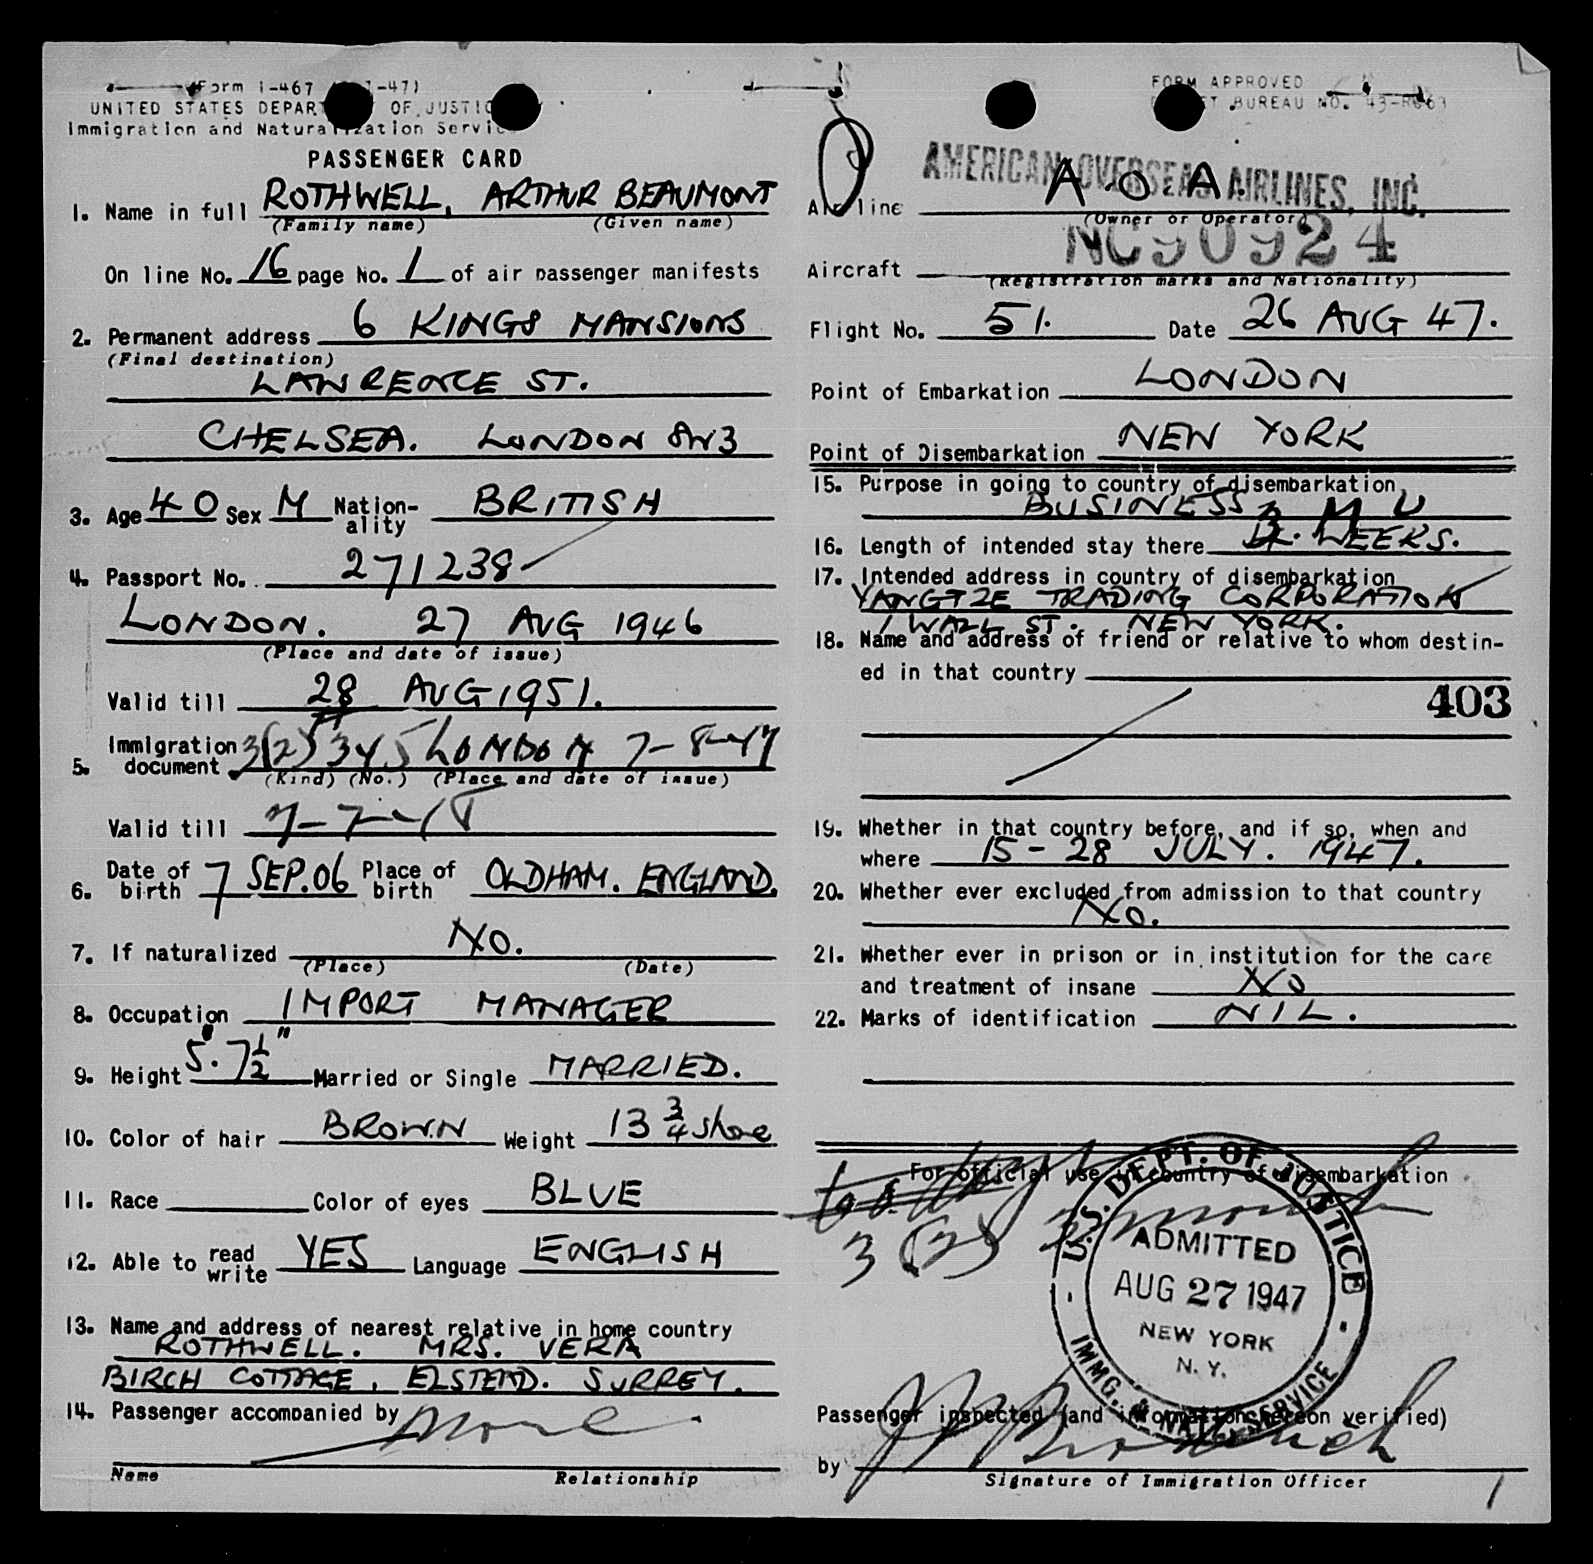 (Form I-467 -47)
UNITED STATES DEPAR OF JUSTIC
Immigration and Naturalization Servic
PASSENGER CARD
1. Name in full ROTHWELL, ARTHUR BEAUMONT
(Family name) (Given name)
On line No. 16 page No. 1 of air passenger manifests
2. Permanent address 6 KINGS MANSIONS
(Final destination)
LAWRENCE ST.
CHELSEA. LONDON SW3
3. Age 40 Sex M Nation-ality BRITISH
4. Passport No. 271238
LONDON. 27 AUG 1946
(Place and date of issue)
Valid till 28 AUG 1951.
5. Immigration document 3(2) 345 LONDON 7-8-47
(Kind) (No.) (Place and date of issue)
Valid till
6. Date of birth 7 SEP. 06 Place of birth OLDHAM. ENGLAND.
7. If naturalized NO.
(Place) (Date)
8. Occupation IMPORT MANAGER
9. Height 5' 7½" Married or Single MARRIED.
10. Color of hair BROWN Weight 13 ¾ stone
11. Race Color of eyes BLUE
12. Able to read write YES Language ENGLISH
13. Name and address of nearest relative in home country
ROTHWELL. MRS. VERA
BIRCH COTTAGE, ELSTEAD. SURREY.
14. Passenger accompanied by None
Name Relationship
FORM APPROVED
BUREAU NO.
AMERICAN OVERSEAS AIRLINES, INC.
Airline A.O.A.
(Owner or Operator)
Aircraft NC90924
(Registration marks and Nationality)
Flight No. 51. Date 26 AUG 47.
Point of Embarkation LONDON
Point of Disembarkation NEW YORK
15. Purpose in going to country of disembarkation
BUSINESS
16. Length of intended stay there WEEKS.
17. Intended address in country of disembarkation
YANGTZE TRADING CORPORATION
1 WALL ST. NEW YORK.
18. Name and address of friend or relative to whom destin-
ed in that country
403
19. Whether in that country before, and if so, when and
where 15-28 JULY. 1947.
20. Whether ever excluded from admission to that country
NO.
21. Whether ever in prison or in institution for the care
and treatment of insane NO
22. Marks of identification NIL.
For official use in country of disembarkation
3(2)
U.S. DEPT. OF JUSTICE
ADMITTED
AUG 27 1947
NEW YORK
N.Y.
IMMG. & NATZ. SERVICE
Passenger inspected (and information hereon verified)
by
Signature of Immigration Officer
1